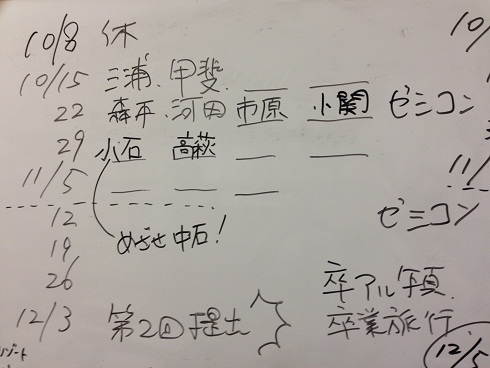 10/8 休 10/
10/15 三浦、甲斐、
22 森平、河田 市原 小関 ゼミコン
29 小石 高萩
11/5 11/
12 めざせ中石! ゼミコン
19
26 卒アル写真
12/3 第2回提出 卒業旅行
ゾート 12/5